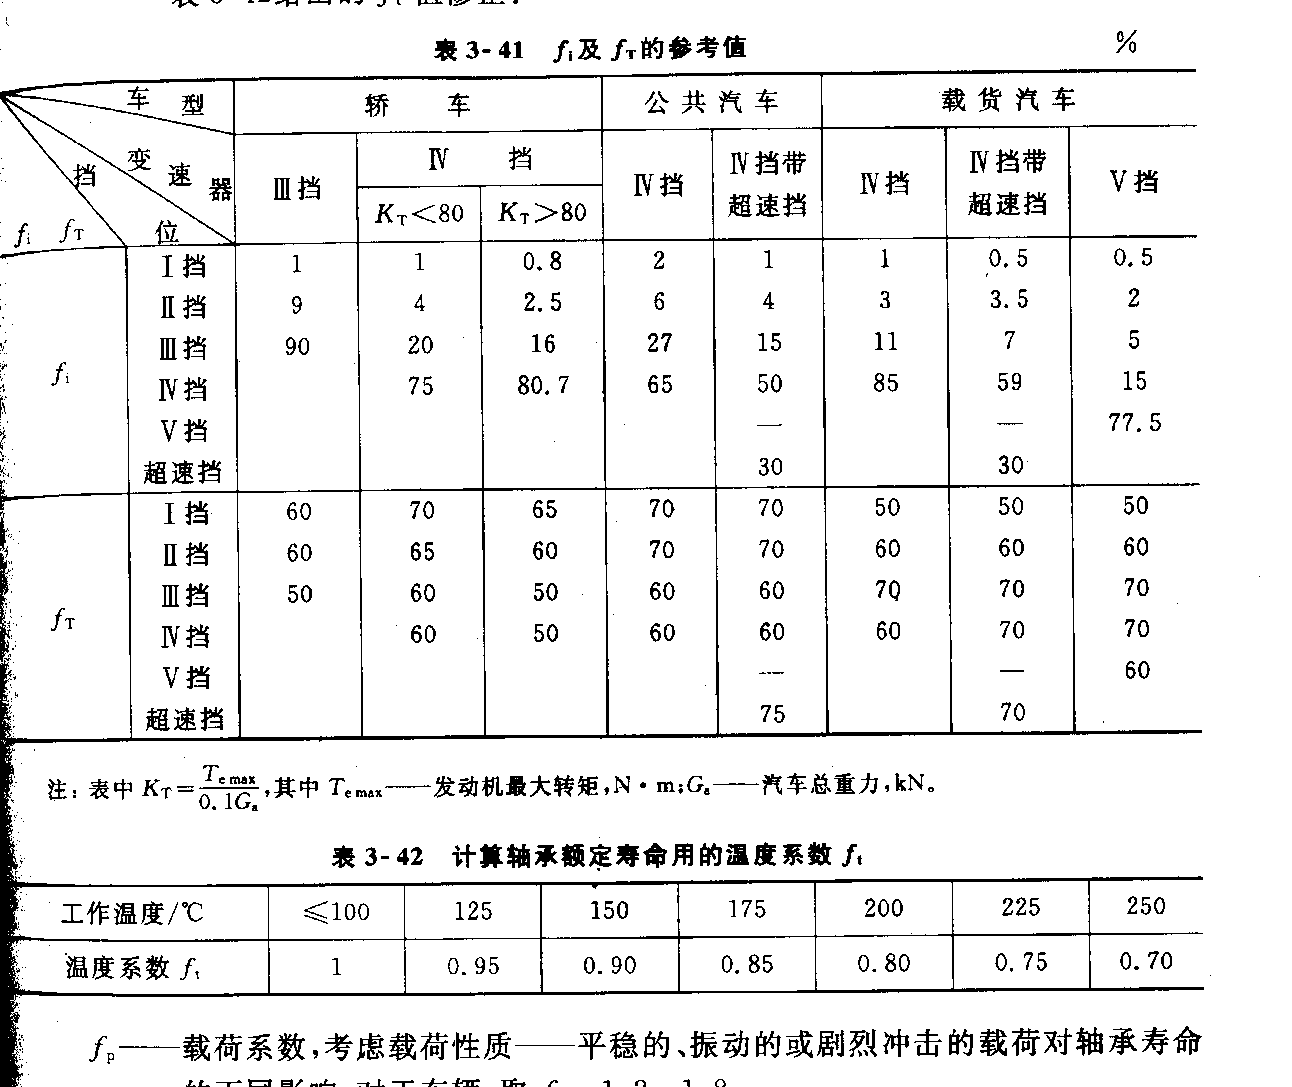 表 3-41 fi及 fT的参考值 %
车 型 轿 车 公共汽车 载货汽车
变速器 Ⅲ挡 Ⅳ 挡 Ⅳ挡 Ⅳ挡带超速挡 Ⅳ挡 Ⅳ挡带超速挡 Ⅴ挡
挡位 KT<80 KT>80
fi fT
Ⅰ挡 1 1 0.8 2 1 1 0.5 0.5
Ⅱ挡 9 4 2.5 6 4 3 3.5 2
Ⅲ挡 90 20 16 27 15 11 7 5
fi Ⅳ挡 75 80.7 65 50 85 59 15
Ⅴ挡 — — 77.5
超速挡 30 30
Ⅰ挡 60 70 65 70 70 50 50 50
Ⅱ挡 60 65 60 70 70 60 60 60
Ⅲ挡 50 60 50 60 60 70 70 70
fT Ⅳ挡 60 50 60 60 60 70 70
Ⅴ挡 — — 60
超速挡 75 70
注：表中 KT=Te max/0.1Ga,其中 Te max——发动机最大转矩,N·m;Ga——汽车总重力,kN。
表 3-42 计算轴承额定寿命用的温度系数 ft
工作温度/℃ ≤100 125 150 175 200 225 250
温度系数 ft 1 0.95 0.90 0.85 0.80 0.75 0.70
fp——载荷系数,考虑载荷性质——平稳的、振动的或剧烈冲击的载荷对轴承寿命